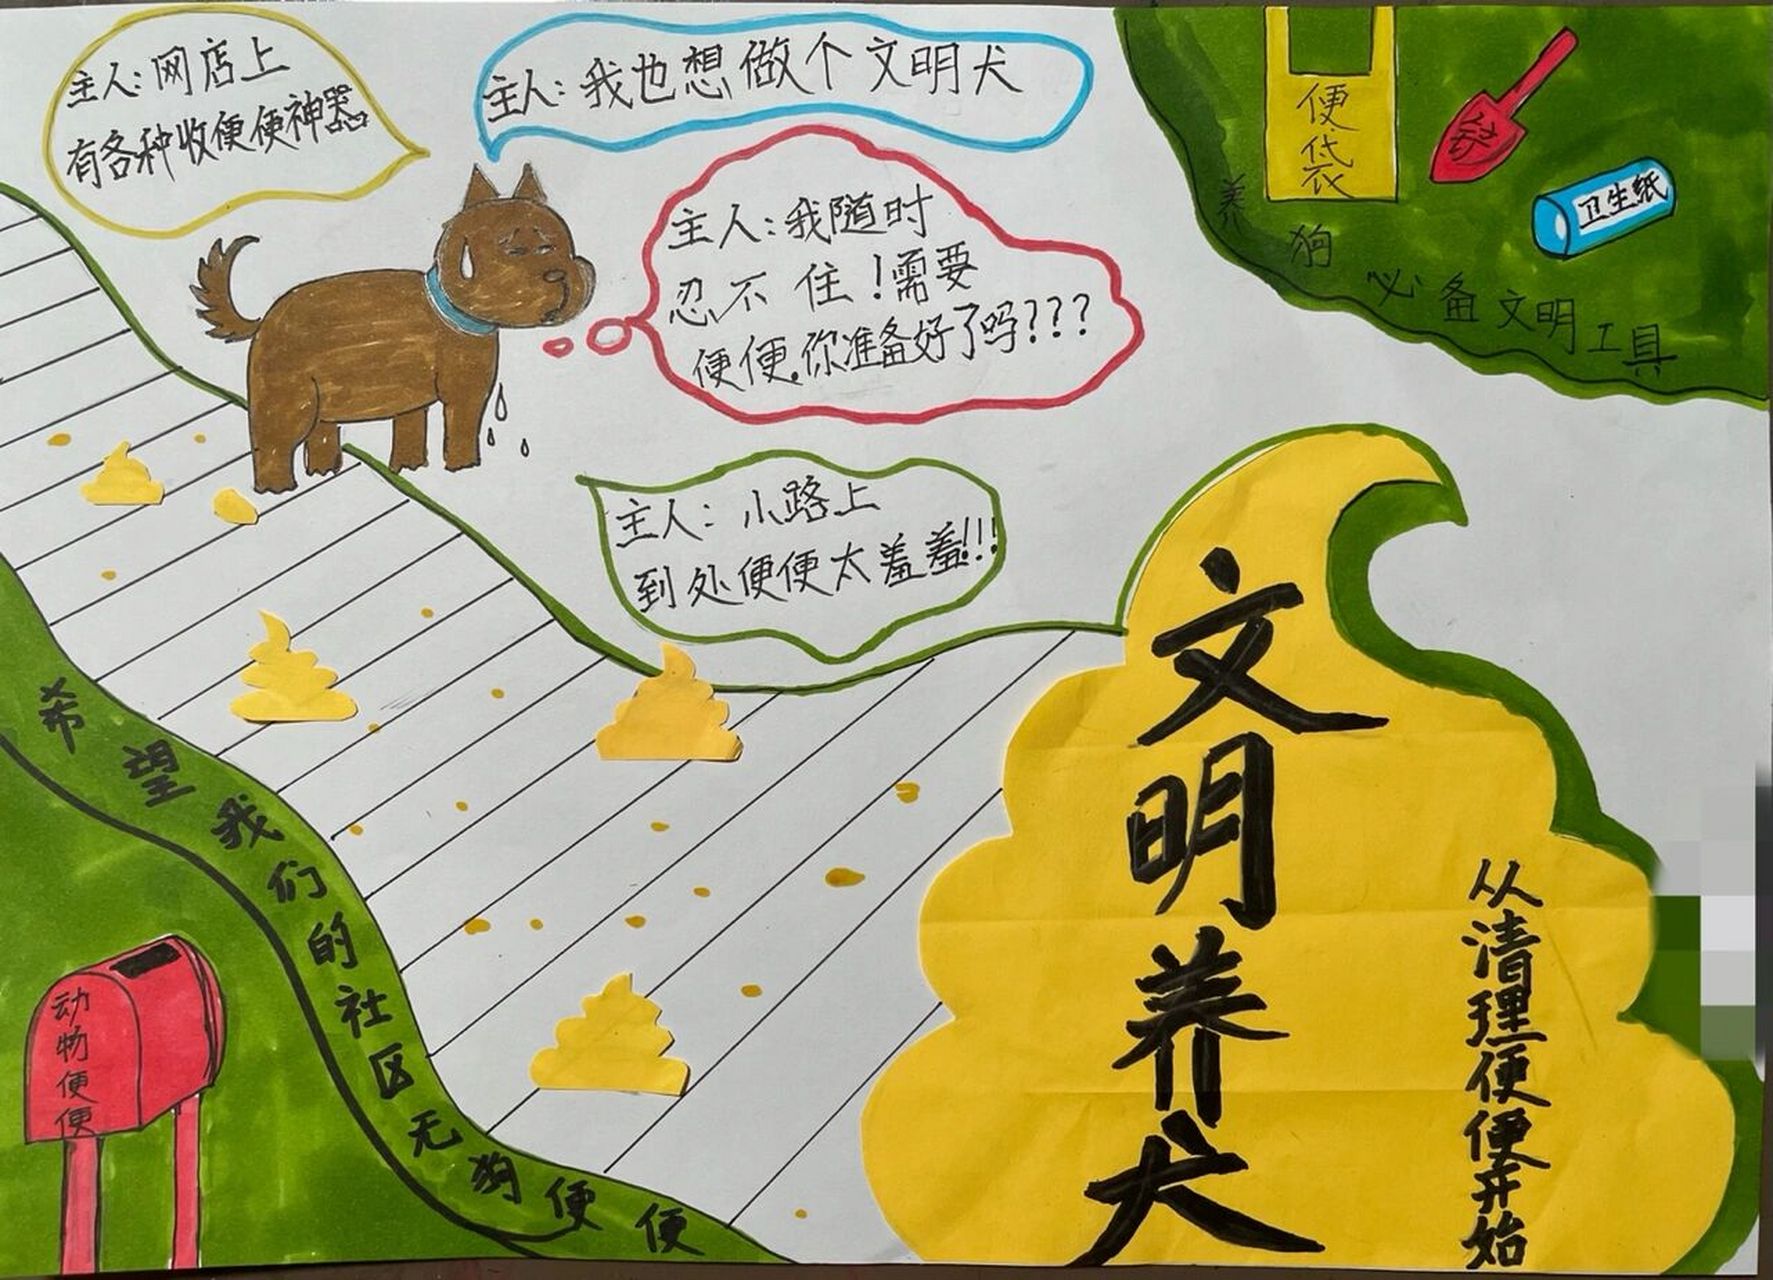 主人:网店上
有各种收便便神器
主人:我也想做个文明犬
主人:我随时
忍不住!需要
便便.你准备好了吗???
主人:小路上
到处便便太羞羞!!!
便袋
铲
卫生纸
养狗必备文明工具
文明养犬
从清理便便开始
希望我们的社区无狗便便
动物便便